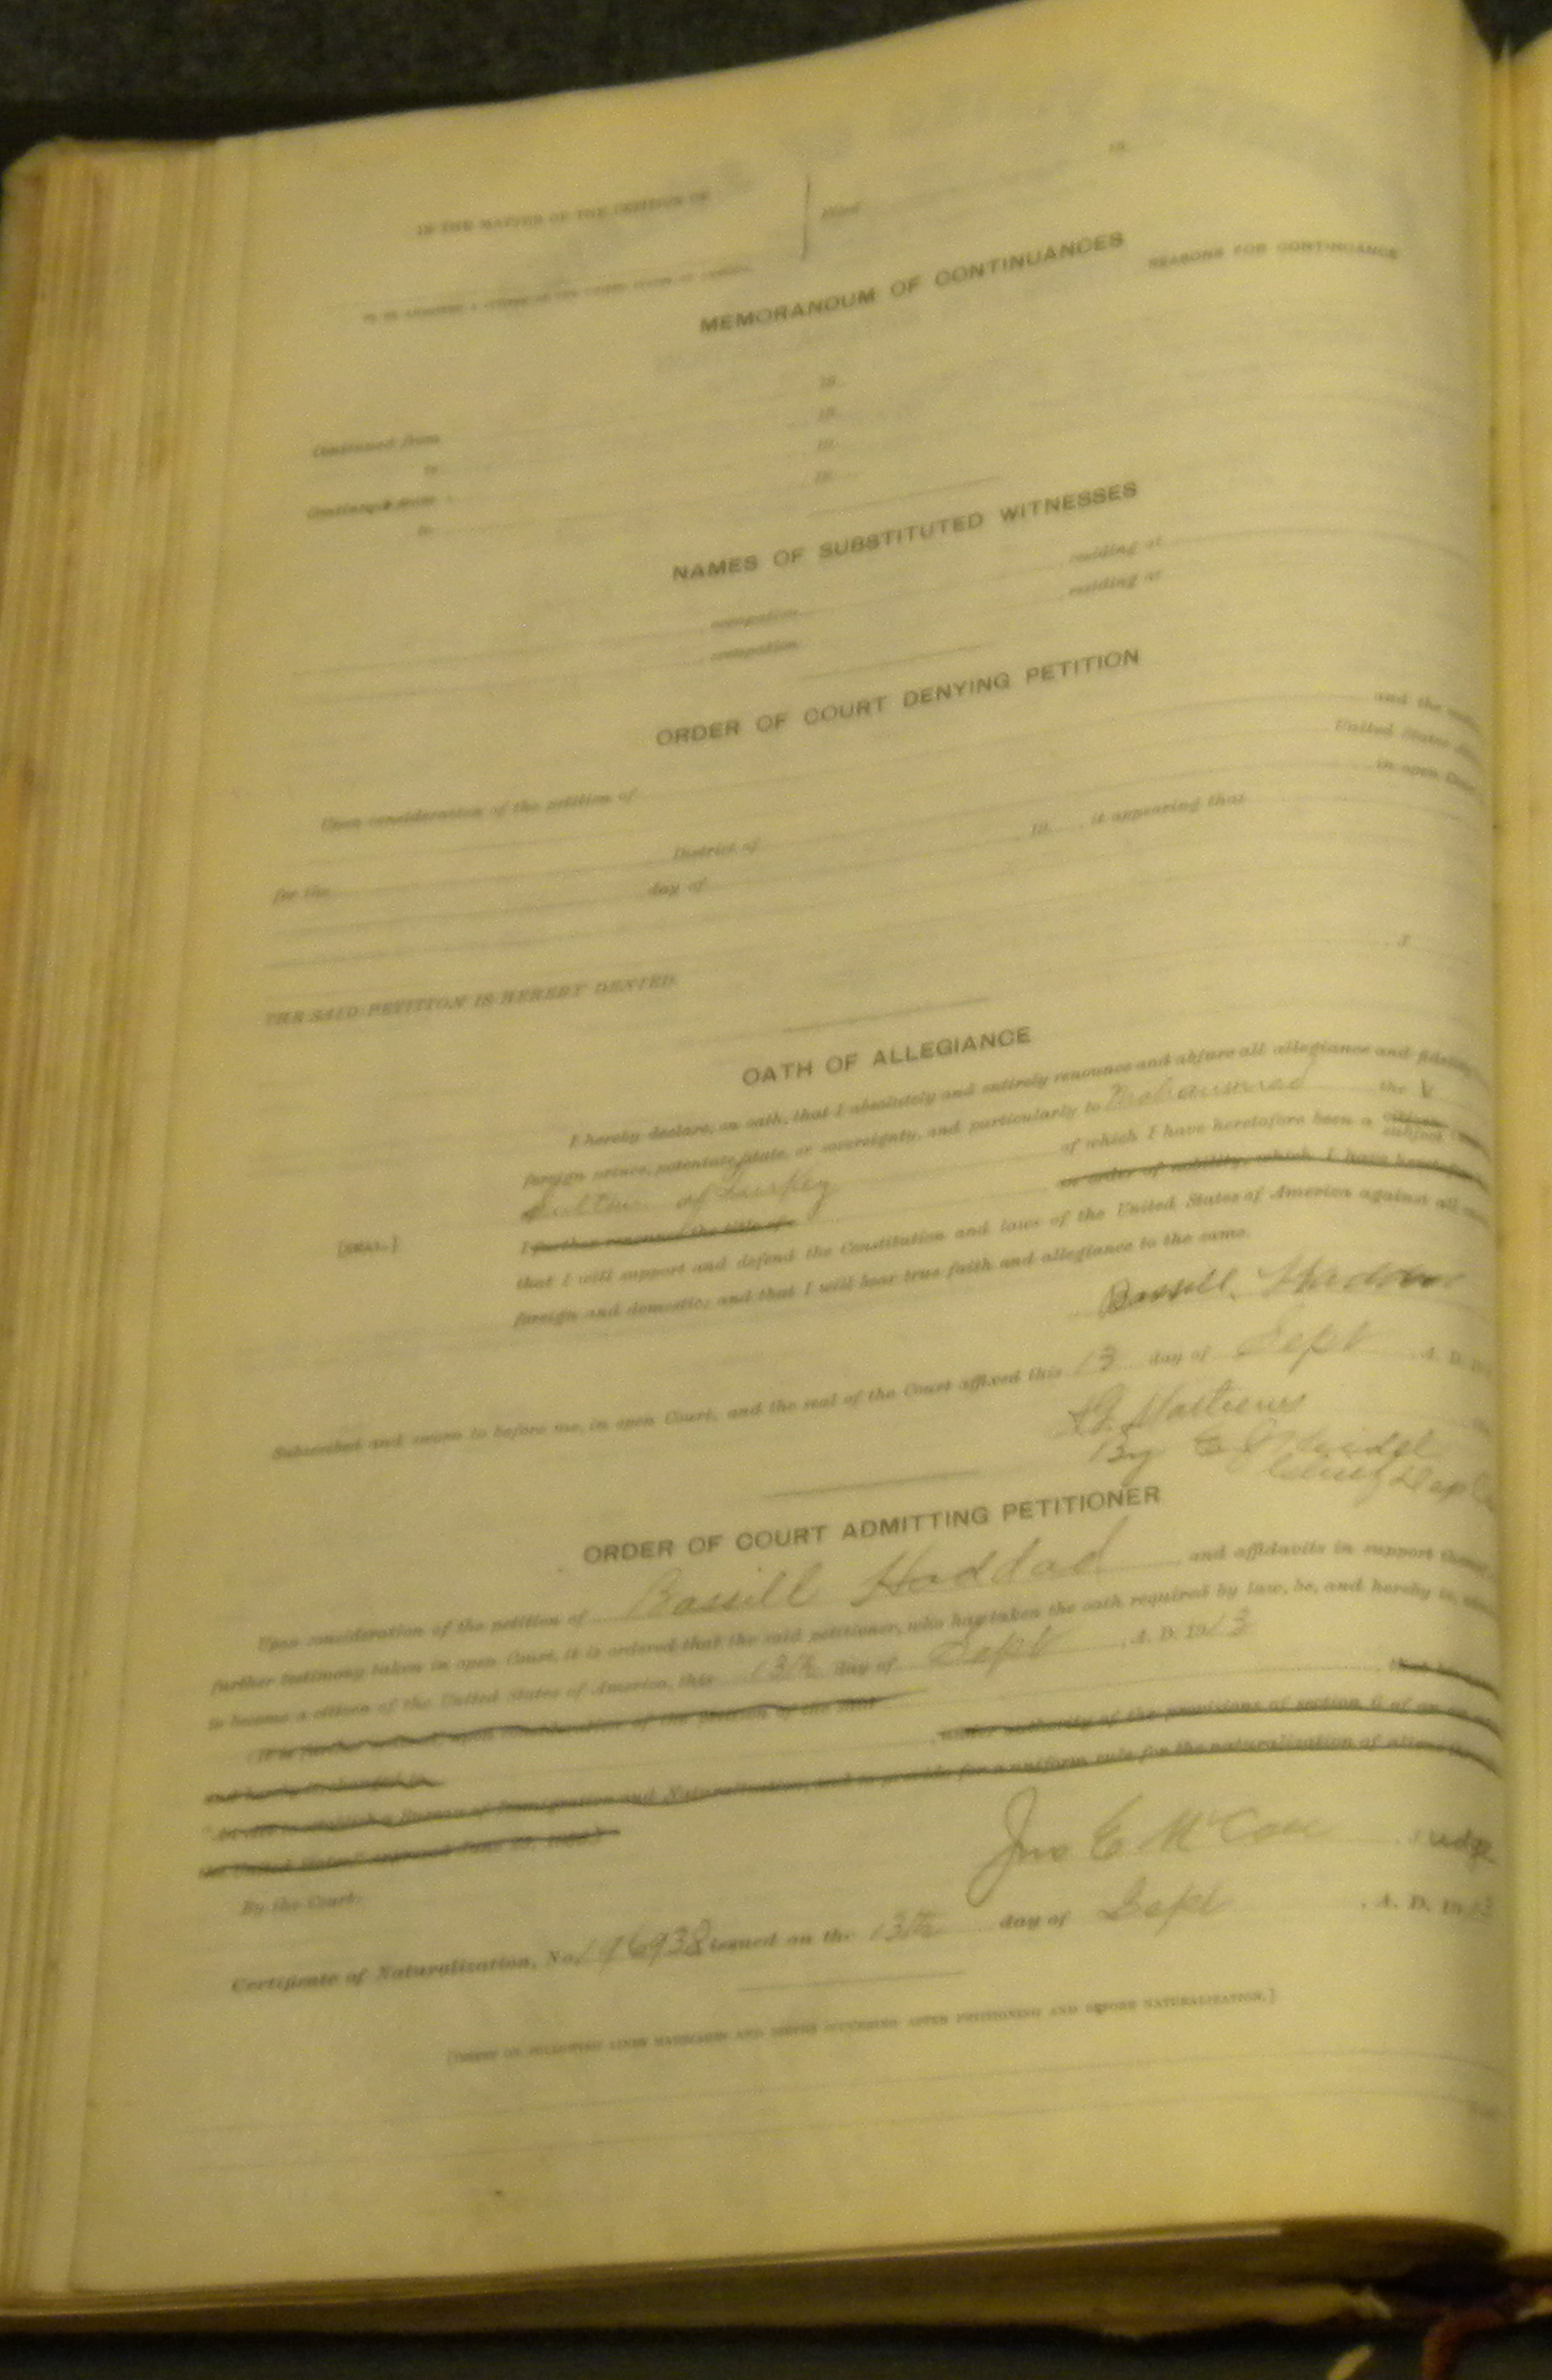 IN THE MATTER OF THE PETITION OF
Filed 19
TO BE ADMITTED A CITIZEN OF THE UNITED STATES OF AMERICA.
MEMORANDUM OF CONTINUANCES
REASONS FOR CONTINUANCE
Continued from 19
to 19
Continued from 19
to 19
NAMES OF SUBSTITUTED WITNESSES
, occupation , residing at
, occupation , residing at
ORDER OF COURT DENYING PETITION
Upon consideration of the petition of and the
for the District of United States
day of , 19 , it appearing that in open Court
THE SAID PETITION IS HEREBY DENIED.
OATH OF ALLEGIANCE
I hereby declare, on oath, that I absolutely and entirely renounce and abjure all allegiance and fidelity
foreign prince, potentate, state, or sovereignty, and particularly to Mohammed the V
Sultan of Turkey of which I have heretofore been a subject
[SEAL.] I further renounce the title of or order of nobility, which I have heretofore
that I will support and defend the Constitution and laws of the United States of America against all
foreign and domestic; and that I will bear true faith and allegiance to the same.
Bassill Haddad
Subscribed and sworn to before me, in open Court, and the seal of the Court affixed this 13 day of Sept A. D.
By
Chief
ORDER OF COURT ADMITTING PETITIONER
Upon consideration of the petition of Bassill Haddad , and affidavits in support thereof,
further testimony taken in open Court, it is ordered that the said petitioner, who has taken the oath required by law, be, and hereby is,
to become a citizen of the United States of America, this 13th day of Sept , A. D. 1913
(It is further ordered, upon consideration of the petition of the said
and hereby is, changed to , under authority of the provisions of section 6 of an
to establish a Bureau of Immigration and Naturalization, and to provide for a uniform rule for the naturalization of aliens
the United States," approved June 29, 1906.)
By the Court:
Jno E McCall , Judge.
Certificate of Naturalization, No. 196938 issued on the 13th day of Sept , A. D. 1913
[ENTER ON FOLLOWING LINES MARRIAGES AND BIRTHS OCCURRING AFTER PETITIONING AND BEFORE NATURALIZATION.]